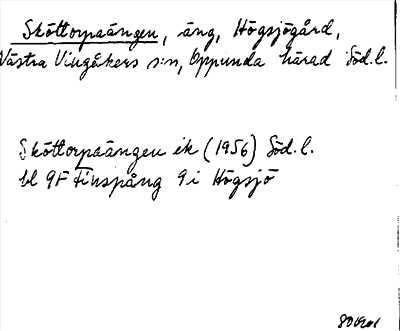 Sköttorpaängen, äng, Högsjögård,
Västra Vingåkers s:n, Oppunda härad Söd.l.
Sköttorpaängen ek (1956) Söd.l.
bl 9F Finspång 9i Högsjö